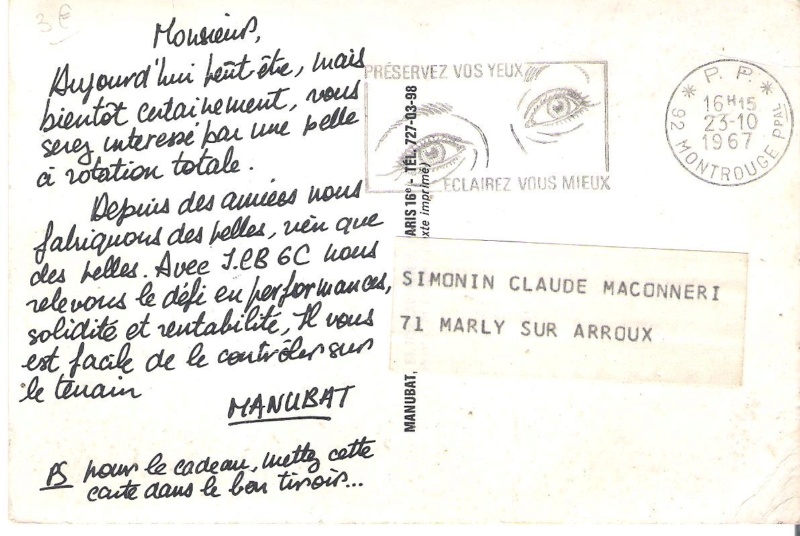 3€
Monsieur,
Aujourd'hui peut-être, mais
bientôt certainement, vous
serez interessé par une pelle
à rotation totale.
Depuis des années nous
fabriquons des pelles, rien que
des pelles. Avec J.CB 6C nous
relevons le défi en performances,
solidité et rentabilité, Il vous
est facile de le contrôler sur
le terrain
MANUBAT
PS pour le cadeau, mettez cette
carte dans le bon tiroir...
PRÉSERVEZ VOS YEUX
ECLAIREZ VOUS MIEUX
* P. P. *
16H15
23-10
1967
92 MONTROUGE PPAL
MANUBAT,
ARIS 16e - TÉL. 727-03-98
xte imprimé)
SIMONIN CLAUDE MACONNERI
71 MARLY SUR ARROUX